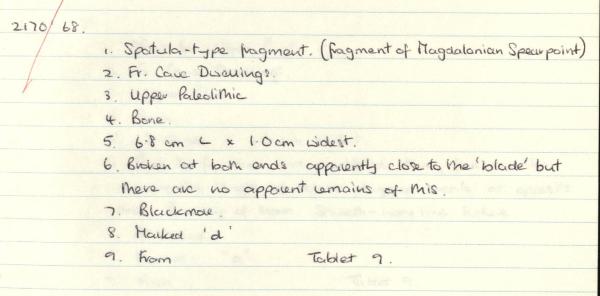 2170/68.
1. Spatula-type fragment. (fragment of Magdalanian Spearpoint)
2. Fr. Cave Diswings.
3. Upper Paleolithic
4. Bone.
5. 6.8 cm L x 1.0cm widest.
6. Broken at both ends apparently close to the 'blade' but
there are no apparent remains of this.
7. Blackmore.
8. Marked 'd'
9. From Tablet 9.